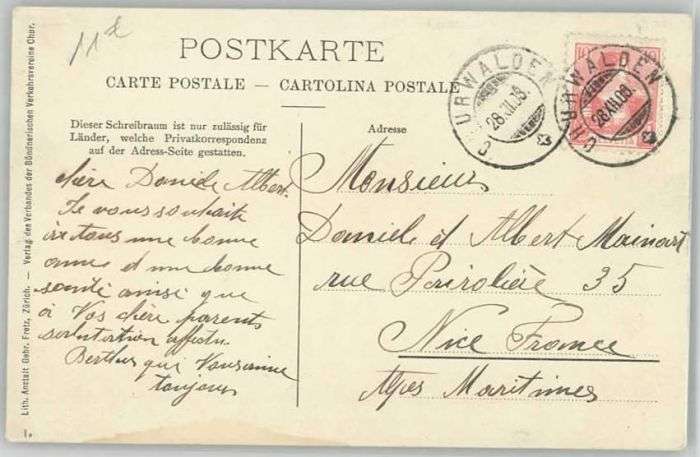 11
POSTKARTE
CARTE POSTALE — CARTOLINA POSTALE
Dieser Schreibraum ist nur zulässig für
Länder, welche Privatkorrespondenz
auf der Adress-Seite gestatten.
Adresse
CHURWALDEN
28.XII.08.
CHURWALDEN
28.XII.08.
10
10
chère Daniele Albert
Je vous souhaite
une bonne
anne et une bonne
santé ainsi que
à Vos chère parents
affectu.
Berthe qui Vous aime
toujours
Monsieur
Daniele et Albert Mainart
rue 35
Nice France
Alpes Maritimes
Lith. Anstalt Gebr. Fretz, Zürich. — Verlag des Verbandes der Bündnerischen Verkehrsvereine Chur.
1.